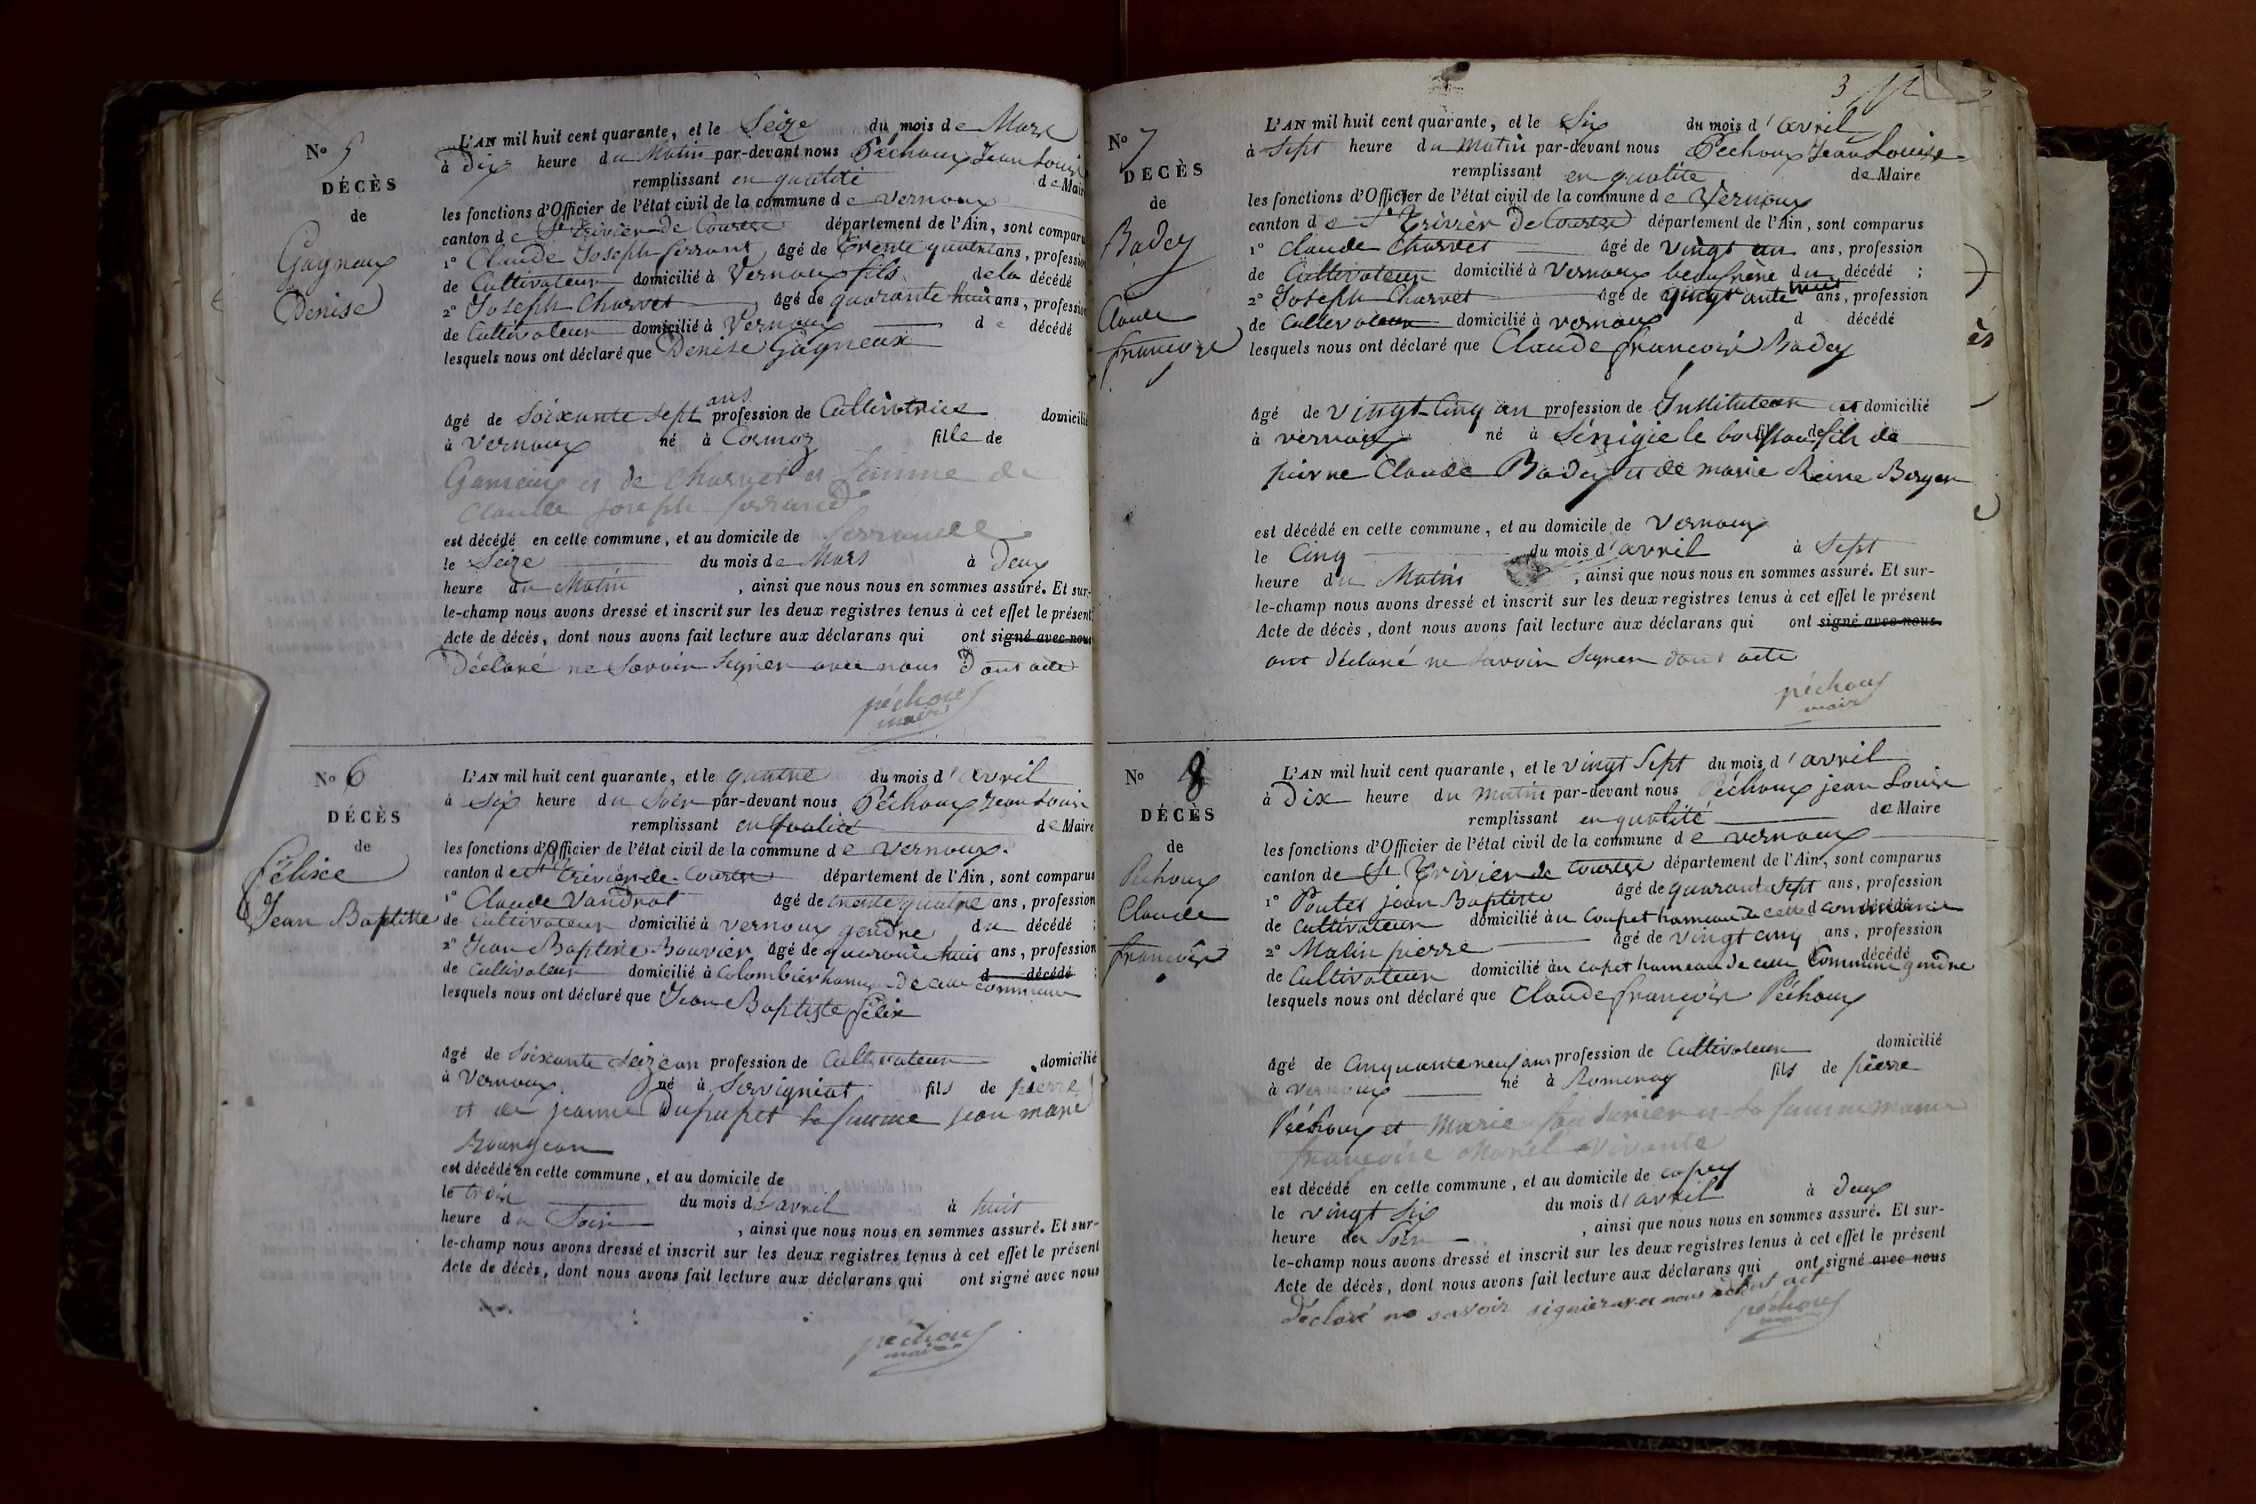 No 5
DÉCÈS
de
Gagneux
Denise
L'AN mil huit cent quarante, et le Seize du mois de Mars
à Dix heure du Matin par-devant nous Péchoux Jean Louis
remplissant en qualité de Maire
les fonctions d'Officier de l'état civil de la commune de Vernoux
canton de St Trivier de Courtes département de l'Ain, sont comparus
1° Claude Joseph ferrant âgé de Trente quatre ans, profession
de Cultivateur domicilié à Vernoux fils de la décédé
2° Joseph Charvet âgé de quarante huit ans, profession
de Cultivateur domicilié à Vernoux d décédé
lesquels nous ont déclaré que Denise Gagneux
âgé de Soixante Sept ans profession de Cultivatrice domicilié
à Vernoux né à Cormoz fille de
et de Charvet et femme de
Claude Joseph ferrand
est décédé en cette commune, et au domicile de
le Seize du mois de Mars à Deux
heure du Matin, ainsi que nous nous en sommes assuré. Et sur-
le-champ nous avons dressé et inscrit sur les deux registres tenus à cet effet le présent
Acte de décès, dont nous avons fait lecture aux déclarans qui ont signé avec nous
Déclaré ne Savoir Signer avec nous Dont acte
péchoux
maire
No 6
DÉCÈS
de
félixe
Jean Baptiste
L'AN mil huit cent quarante, et le quatre du mois d'avril
à Six heure du Soir par-devant nous Péchoux Jean Louis
remplissant en qualité de Maire
les fonctions d'Officier de l'état civil de la commune de Vernoux.
canton de St Trivier de Courtes département de l'Ain, sont comparus
1° Claude Vandrot âgé de trente quatre ans, profession
de Cultivateur domicilié à Vernoux gendre du décédé ;
2° Jean Baptiste Bouvier âgé de quarante huit ans, profession
de Cultivateur domicilié à Colombier hameau de cette commune d décédé ;
lesquels nous ont déclaré que Jean Baptiste félix
âgé de Soixante Seize an profession de Cultivateur domicilié
à Vernoux né à Servigniat fils de pierre
et de jeanne Dupupet sa famme jean marie
Bourgeon
est décédé en cette commune, et au domicile de
le trois du mois de avril à huit
heure du Soir, ainsi que nous nous en sommes assuré. Et sur-
le-champ nous avons dressé et inscrit sur les deux registres tenus à cet effet le présent
Acte de décès, dont nous avons fait lecture aux déclarans qui ont signé avec nous
péchoux
maire
3
No 7
DÉCÈS
de
Badey
Claude
francoise
L'AN mil huit cent quarante, et le Six du mois d'avril
à Sept heure du Matin par-devant nous Péchoux Jean Louise
remplissant en qualité de Maire
les fonctions d'Officier de l'état civil de la commune de Vernoux
canton de St Trivier de Courtes département de l'Ain, sont comparus
1° Claude Charvet âgé de vingt un ans, profession
de Cultivateur domicilié à Vernoux beaufrère du décédé ;
2° Joseph Charvet âgé de ante huit ans, profession
de Cultivateur domicilié à vernoux d décédé
lesquels nous ont déclaré que Claude francois Badey
âgé de vingt-Cinq an profession de Instituteur est domicilié
à vernoux né à Sénigie le fils de
pierre Claude Badey et de marie Reine Berger
est décédé en cette commune, et au domicile de Vernoux
le Cinq du mois d'avril à Sept
heure du Matin, ainsi que nous nous en sommes assuré. Et sur-
le-champ nous avons dressé et inscrit sur les deux registres tenus à cet effet le présent
Acte de décès, dont nous avons fait lecture aux déclarans qui ont signé avec nous.
ont déclaré ne Savoir Signer dont acte
péchoux
maire
No 8
DÉCÈS
de
Péchoux
Claude
francois
L'AN mil huit cent quarante, et le vingt Sept du mois d'avril
à Dix heure du matin par-devant nous Péchoux jean Louis
remplissant en qualité de Maire
les fonctions d'Officier de l'état civil de la commune de vernoux
canton de St Trivier de Courtes département de l'Ain, sont comparus
1° Poutet jean Baptiste âgé de quarante sept ans, profession
de Cultivateur domicilié à u Coupet hameau de cette commune d décédé
2° Malin pierre âgé de vingt cinq ans, profession
de Cultivateur domicilié à u capet hameau de cette Commune gendre décédé
lesquels nous ont déclaré que Claude françois Péchoux
âgé de Cinquante neuf ans profession de Cultivateur domicilié
à vernoux né à Romenay fils de pierre
Péchoux et Marie et Sa famme marie
françoise Morel vivante
est décédé en cette commune, et au domicile de capey
le vingt Six du mois d'avril à deux
heure du Soir, ainsi que nous nous en sommes assuré. Et sur-
le-champ nous avons dressé et inscrit sur les deux registres tenus à cet effet le présent
Acte de décès, dont nous avons fait lecture aux déclarans qui ont signé avec nous
déclaré ne savoir signier avec nous dont act
péchoux
maire